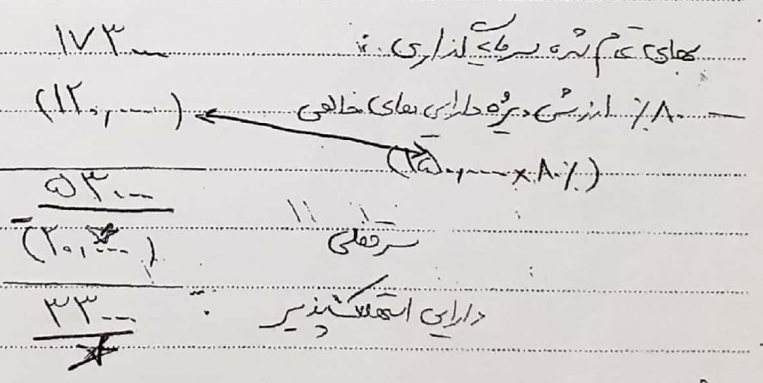 بهای تمام شده سرمایه گذاری : ۱۷۳۰۰۰
۸۰٪ ارزش ویژه دارایی های خالص (۱۲۰,۰۰۰)
(۱۵۰,۰۰۰ × ۸۰٪)
۵۳۰۰۰
سرقفلی (۲۰,۰۰۰)
دارایی استهلاک پذیر ۳۳۰۰۰